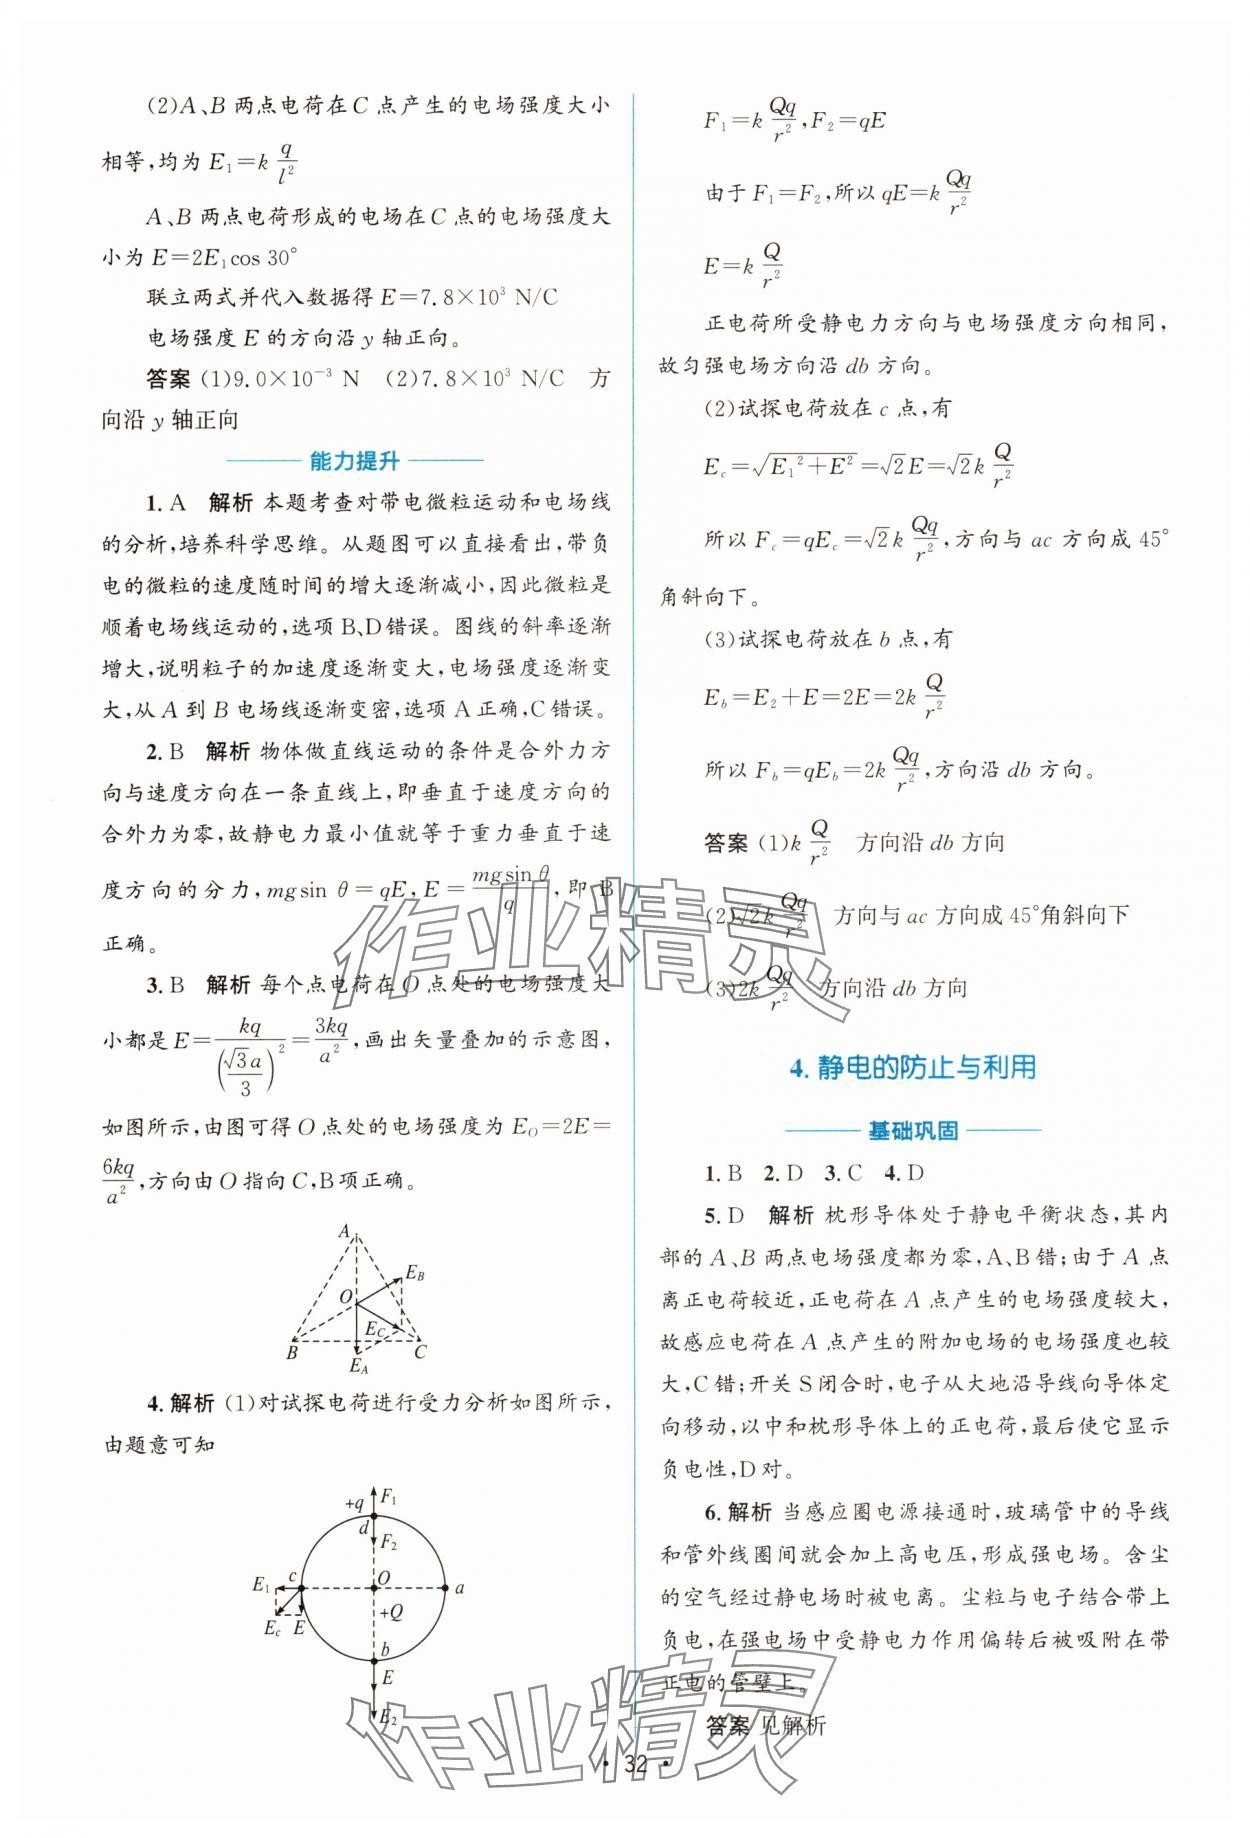 (2)A、B 两点电荷在 C 点产生的电场强度大小
相等,均为 E₁=k q/l²
A、B 两点电荷形成的电场在 C 点的电场强度大
小为 E=2E₁cos 30°
联立两式并代入数据得 E=7.8×10³ N/C
电场强度 E 的方向沿 y 轴正向。
答案 (1)9.0×10⁻³ N (2)7.8×10³ N/C 方
向沿 y 轴正向
能力提升
1. A 解析 本题考查对带电微粒运动和电场线
的分析,培养科学思维。从题图可以直接看出,带负
电的微粒的速度随时间的增大逐渐减小,因此微粒是
顺着电场线运动的,选项 B、D 错误。图线的斜率逐渐
增大,说明粒子的加速度逐渐变大,电场强度逐渐变
大,从 A 到 B 电场线逐渐变密,选项 A 正确,C 错误。
2. B 解析 物体做直线运动的条件是合外力方
向与速度方向在一条直线上,即垂直于速度方向的
合外力为零,故静电力最小值就等于重力垂直于速
度方向的分力,mgsin θ=qE,E=mgsin θ/q,即 B
正确。
3. B 解析 每个点电荷在 O 点处的电场强度大
小都是 E=kq/(√3a/3)²=3kq/a²,画出矢量叠加的示意图,
如图所示,由图可得 O 点处的电场强度为 E_O=2E=
6kq/a²,方向由 O 指向 C,B 项正确。
A
E_B
O
E_C
B
E_A
C
4. 解析 (1)对试探电荷进行受力分析如图所示,
由题意可知
+q
F₁
d
F₂
E₁
c
O
a
E_c
E
+Q
b
E
E₂
F₁=k Qq/r²,F₂=qE
由于 F₁=F₂,所以 qE=k Qq/r²
E=k Q/r²
正电荷所受静电力方向与电场强度方向相同,
故匀强电场方向沿 db 方向。
(2)试探电荷放在 c 点,有
E_c=√(E₁²+E²)=√2E=√2k Q/r²
所以 F_c=qE_c=√2k Qq/r²,方向与 ac 方向成 45°
角斜向下。
(3)试探电荷放在 b 点,有
E_b=E₂+E=2E=2k Q/r²
所以 F_b=qE_b=2k Qq/r²,方向沿 db 方向。
答案 (1)k Q/r² 方向沿 db 方向
(2)√2k Qq/r² 方向与 ac 方向成 45°角斜向下
(3)2k Qq/r² 方向沿 db 方向
4. 静电的防止与利用
基础巩固
1. B 2. D 3. C 4. D
5. D 解析 枕形导体处于静电平衡状态,其内
部的 A、B 两点电场强度都为零,A、B 错;由于 A 点
离正电荷较近,正电荷在 A 点产生的电场强度较大,
故感应电荷在 A 点产生的附加电场的电场强度也较
大,C 错;开关 S 闭合时,电子从大地沿导线向导体定
向移动,以中和枕形导体上的正电荷,最后使它显示
负电性,D 对。
6. 解析 当感应圈电源接通时,玻璃管中的导线
和管外线圈间就会加上高电压,形成强电场。含尘
的空气经过静电场时被电离。尘粒与电子结合带上
负电,在强电场中受静电力作用偏转后被吸附在带
正电的管壁上。
答案 见解析
作业精灵
作业精灵
· 32 ·